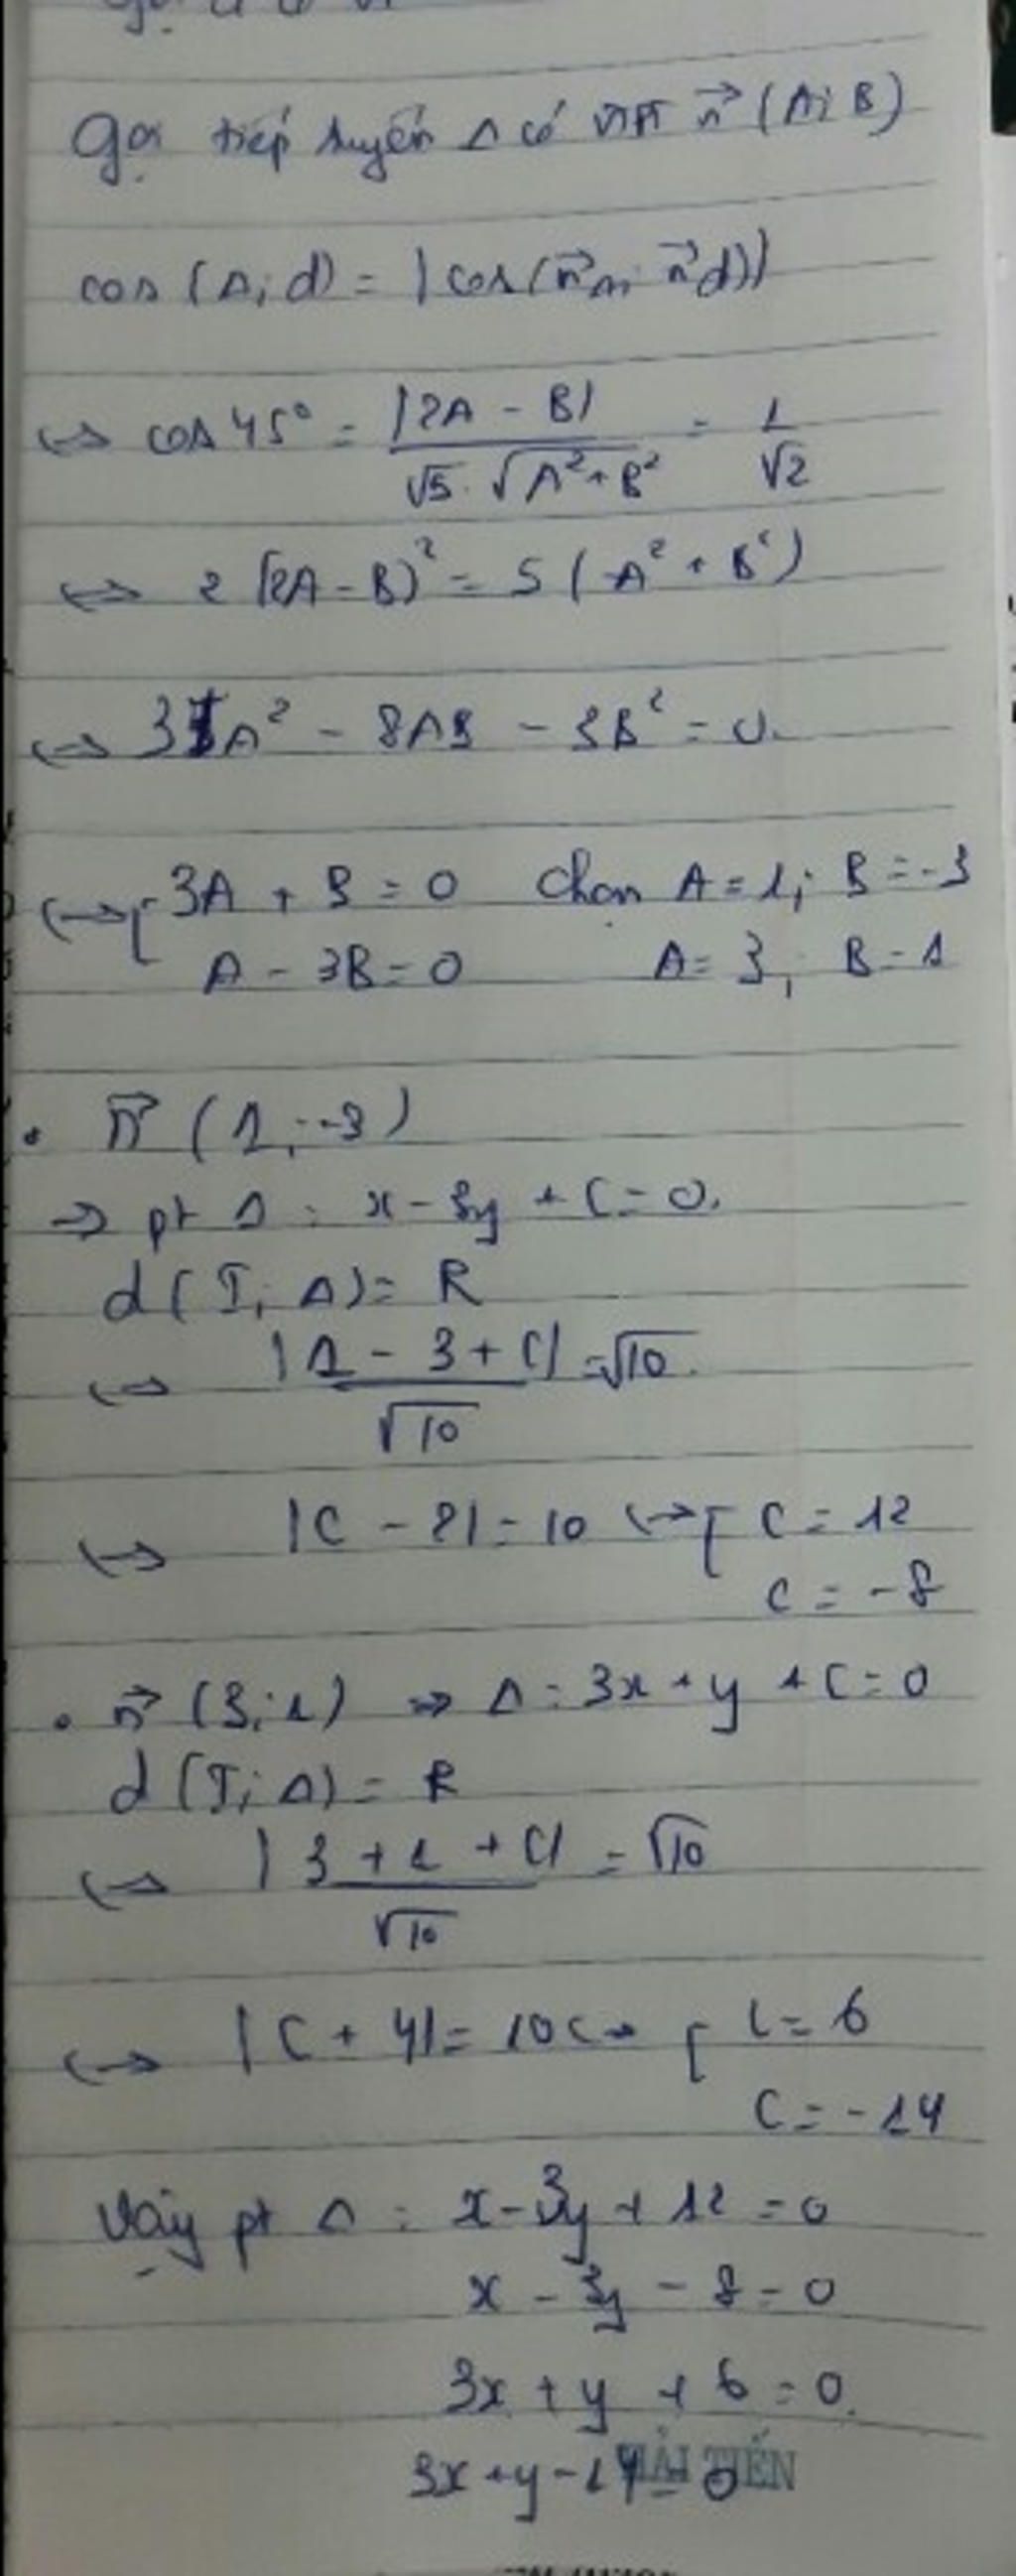 Gọi tiếp tuyến Δ có VTPT n⃗ (A; B)
cos (Δ; d) = |cos(n⃗Δ; n⃗d)|
↔ cos 45° = |2A - B| / √5 . √A² + B² = 1/√2
↔ 2 (2A - B)² = 5 (A² + B²)
↔ 3A² - 8AB - 3B² = 0.
↔ [ 3A + B = 0 Chọn A = 1; B = -3
A - 3B = 0 A = 3; B = 1
• n⃗ (1; -3)
⇒ pt Δ : x - 3y + C = 0.
d (I; Δ) = R
↔ |1 - 3 + C| / √10 = √10
↔ |C - 2| = 10 ↔ [ C = 12
C = -8
• n⃗ (3; 1) ⇒ Δ : 3x + y + C = 0
d (I; Δ) = R
↔ |3 + 1 + C| / √10 = √10
↔ |C + 4| = 10 ↔ [ C = 6
C = -14
Vậy pt Δ : x - 3y + 12 = 0
x - 3y - 8 = 0
3x + y + 6 = 0.
3x + y - 14 = 0
HẢI TIẾN